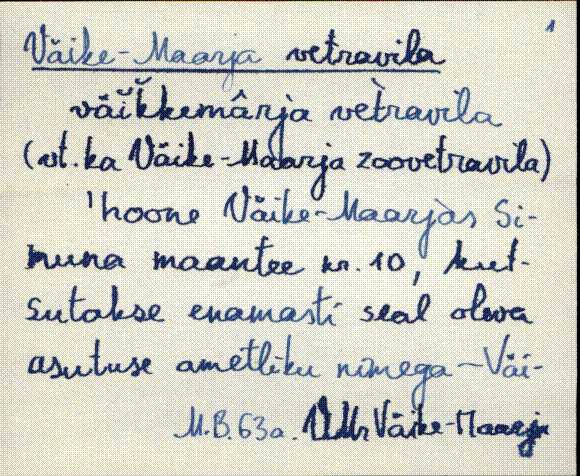 1
Väike-Maarja vetravila
väi̮kkemârja vètravila
(vt. ka Väike-Maarja zoovetravila)
'hoone Väike-Maarjas Si-
muna maantee nr. 10, kut-
sutakse enamasti seal oleva
asutuse ametliku nimega - Väi-
M.B. 63a. VMr Väike-Maarja